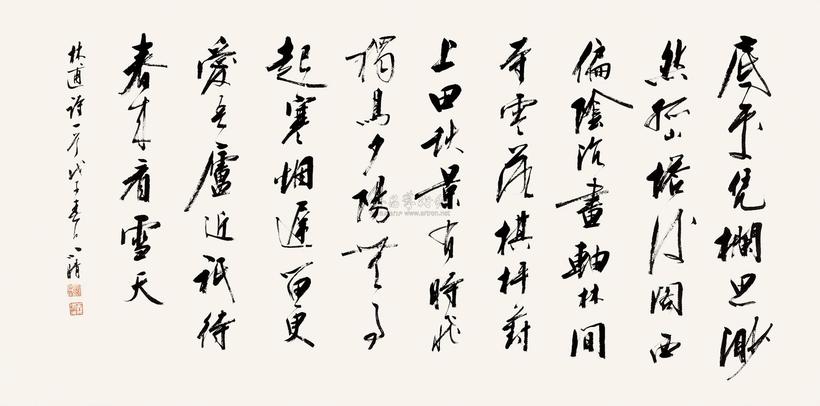 底處凭欄思渺
然孤山塔後閣西
偏陰沉畫軸林間
寺零落棋枰葑
上田秋景有時飛
獨鳥夕陽無事
起寒烟遲留更
愛吾廬近祇待
春來看雪天
林逋詩一首戊子春
www.artron.net